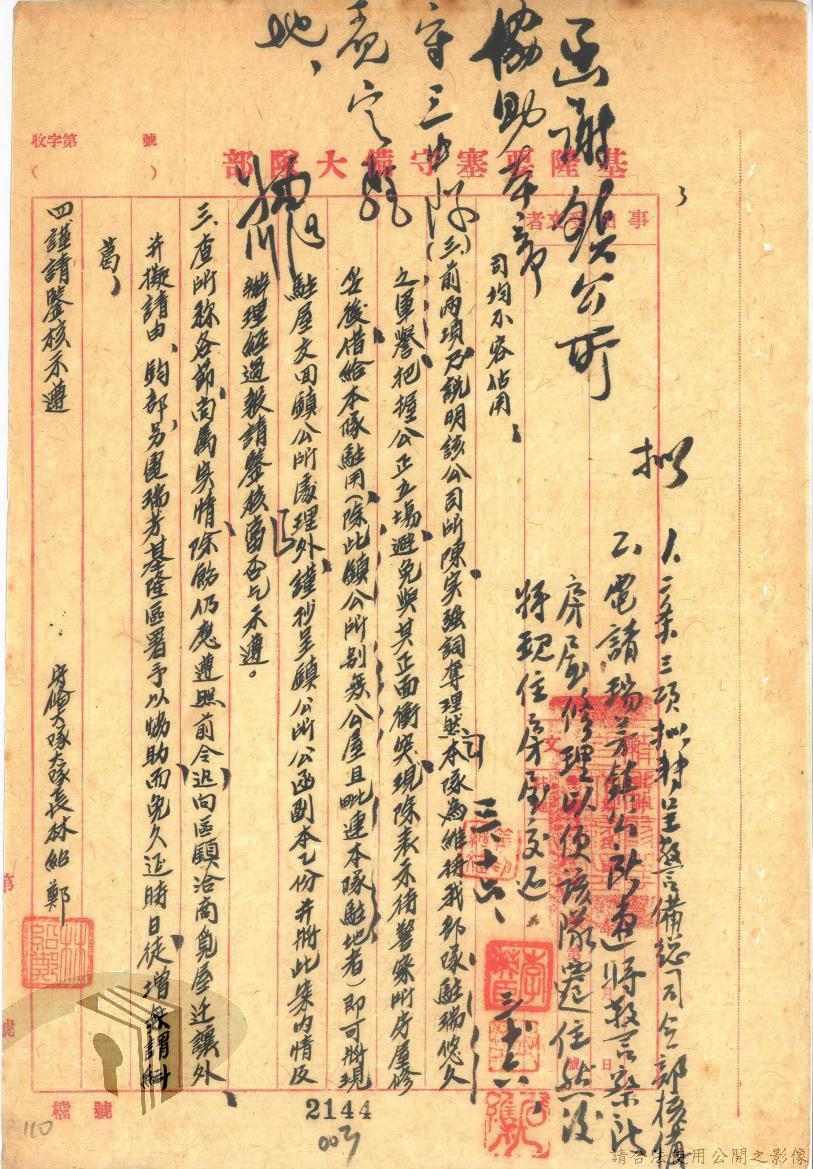 基隆要塞守備大隊部
收字第　　號
(　　)
事由
受文者
函謝鎮公所
協助本部
守三中隊
覓定駐
地、
擬
1、二案三項擬轉呈警備總司令部核備
2、電請瑞芳鎮公所速將警察所
房屋修理以便該隊遷住然後
將現住房屋交还。
三、十六、
三、十六、
司均不容佔用；
(三)前兩項乃說明該公司所陳实强詞奪理然本隊為維持我部隊駐瑞悠久
之軍譽把握公正立場避免與其正面衝突現除表示待警察所房屋修
告後借給本隊駐用(除此鎮公所别無公屋且毗連本隊駐地者)即可將現
駐屋交回鎮公所處理外謹抄呈鎮公所公函副本乙份并將此案内情及
辦理經過報請鑒核當否乞示遵。
三、查所称各節尚属实情除飭仍應遵照前令迅向區鎮洽商覓屋迁讓外
并擬請由鈞部另電瑞芳基隆區署予以協助而免久延時日徒增
葛、
四謹請鑒核示遵
守備大隊大隊長林紹鄭
林紹鄭
檔號
2144
003
110
請合法使用公開之影像